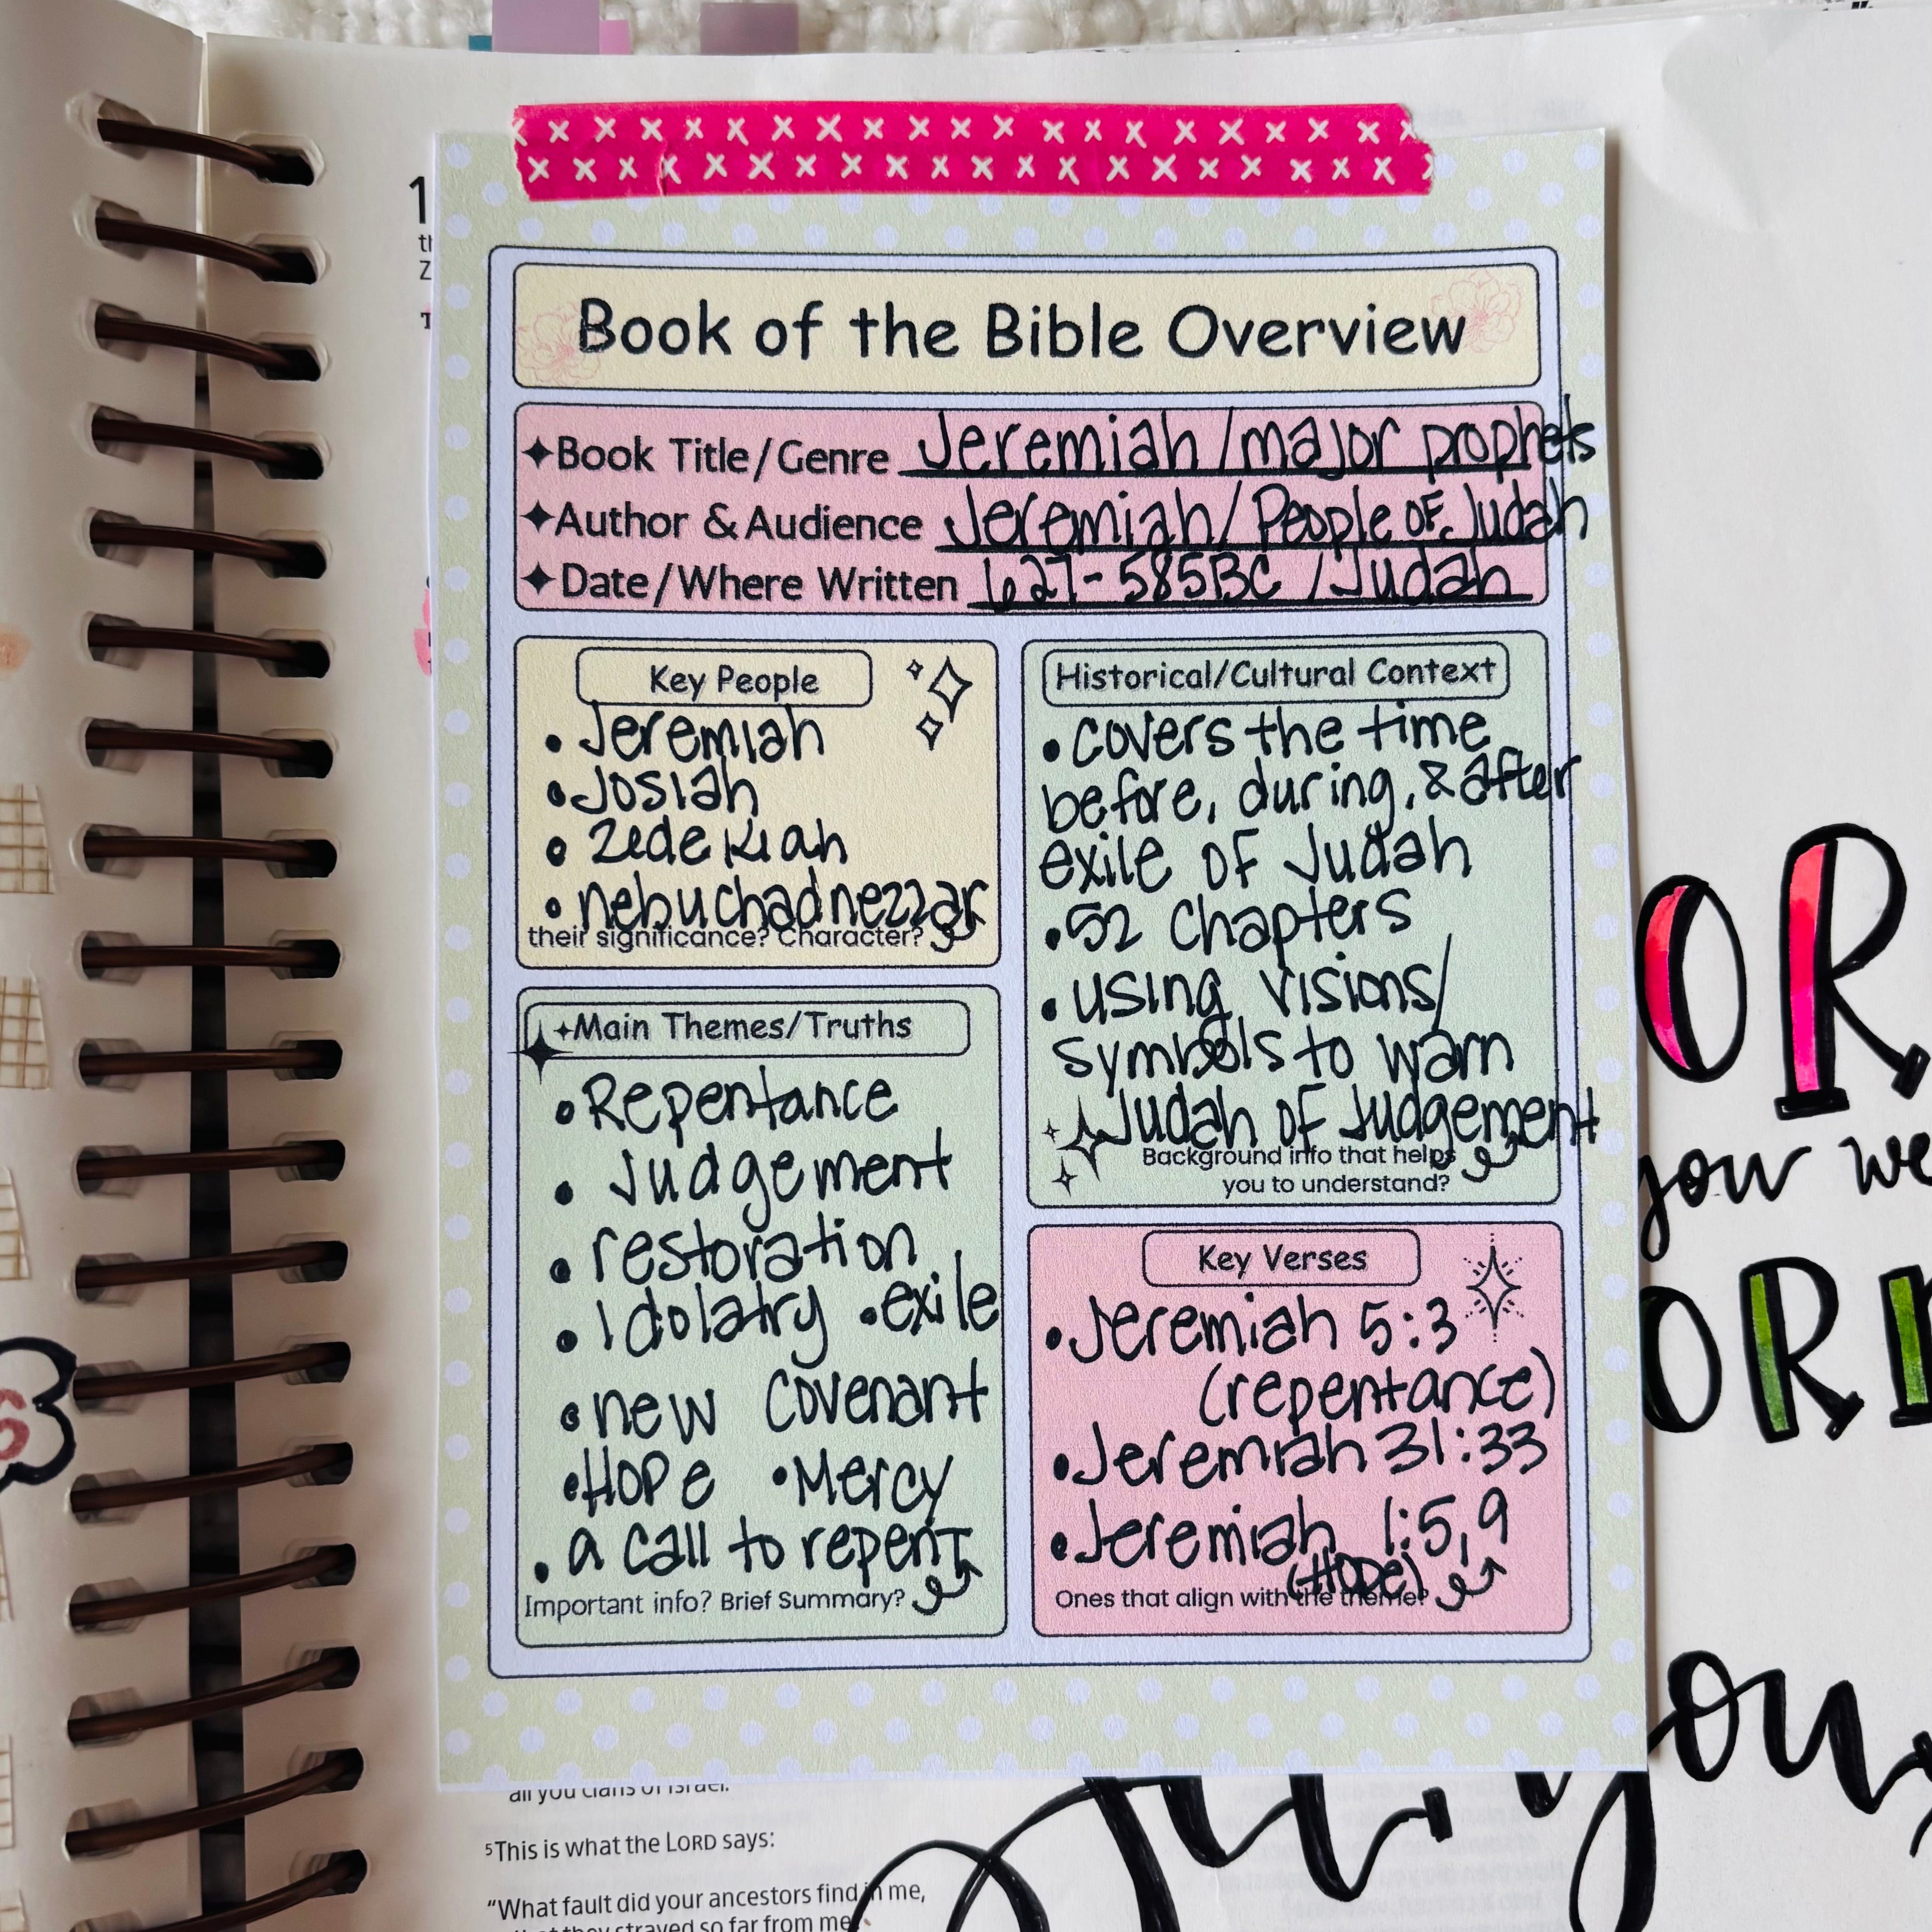 Book of the Bible Overview
Book Title/Genre Jeremiah/major prophets
Author & Audience Jeremiah/People of Judah
Date/Where Written 627-585BC/Judah
Key People
• Jeremiah
• Josiah
• Zedekiah
• nebuchadnezzar
their significance? Character?
Main Themes/Truths
• Repentance
• Judgement
• restoration
• Idolatry • exile
• new covenant
• Hope • Mercy
• a call to repent
Important info? Brief Summary?
Historical/Cultural Context
• covers the time
before, during, & after
exile of Judah
• 52 chapters
• using visions/
symbols to warn
Judah of Judgement
Background info that helps
you to understand?
Key Verses
• Jeremiah 5:3
(repentance)
• Jeremiah 31:33
• Jeremiah 1:5,9
(Hope)
Ones that align with the theme?
OR
you we
you
all you clans of Israel.
5 This is what the LORD says:
“What fault did your ancestors find in me,
that they strayed so far from me